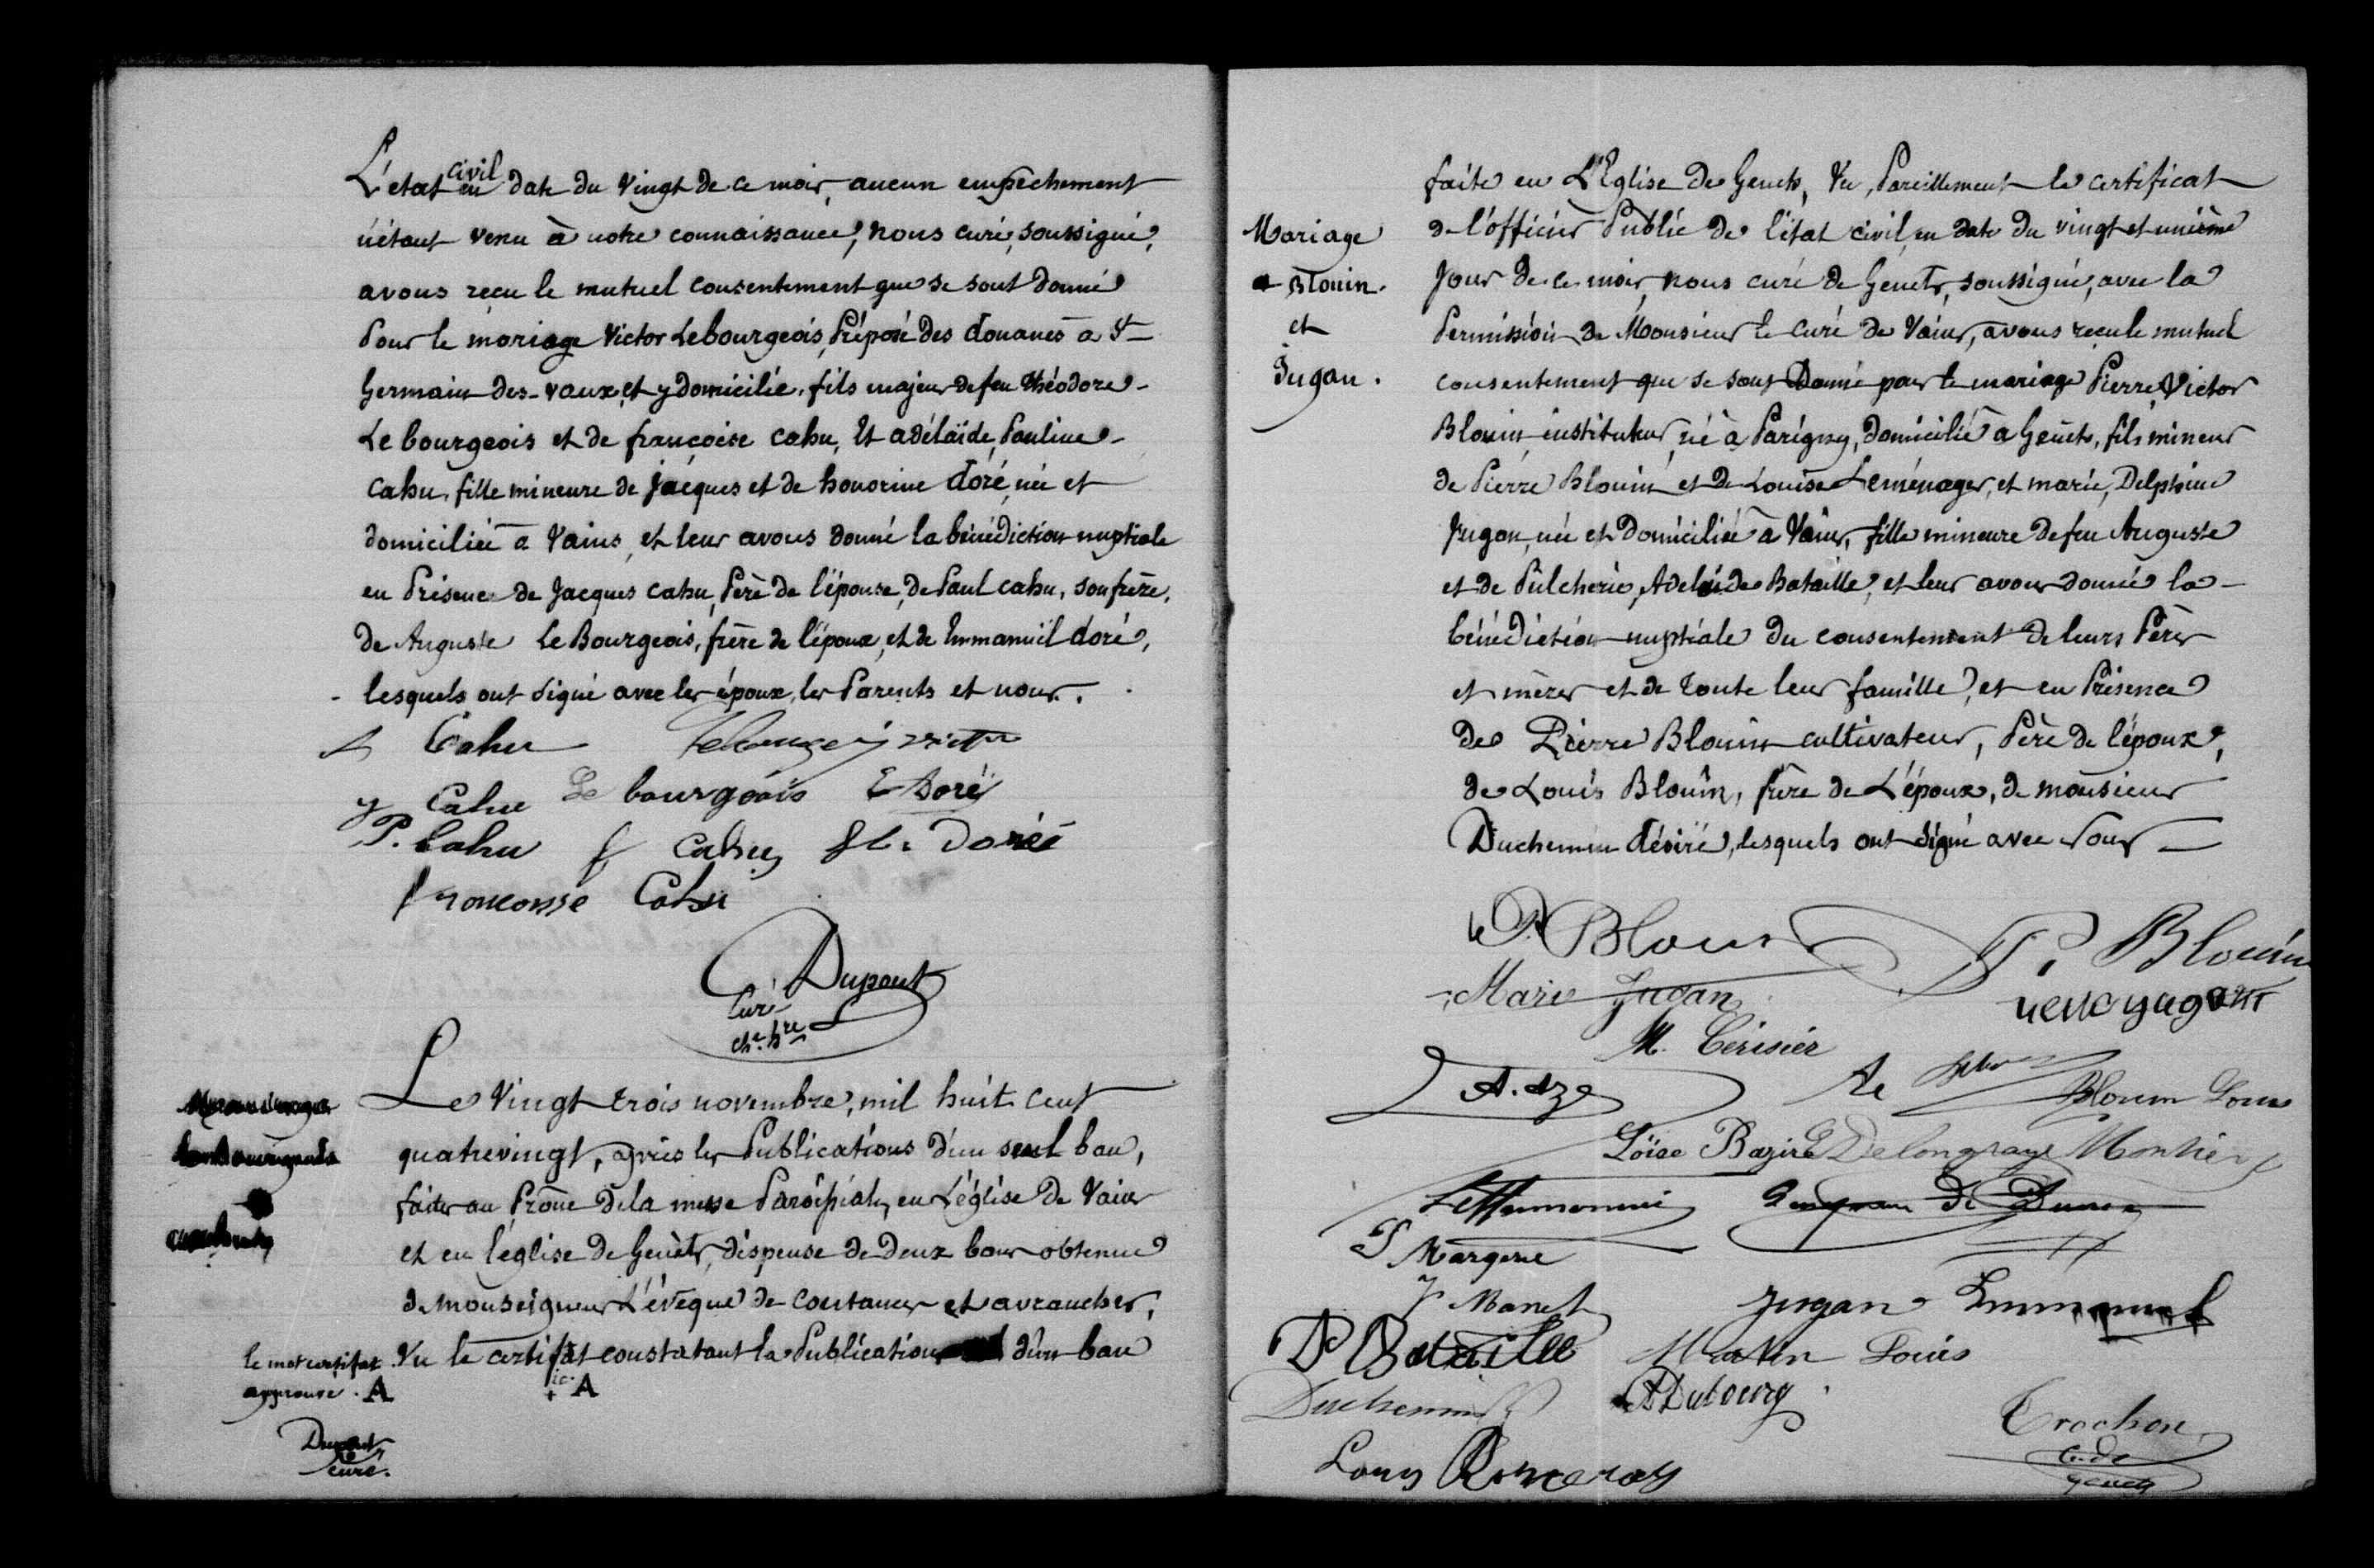 L'état civil en date du vingt de ce mois, aucun empêchement
n'étant venu à notre connaissance, nous curé soussigné,
avons reçu le mutuel consentement que se sont donné
Pour le mariage Victor Lebourgeois, Préposé des douanes a St
Germain-des-vaux, et y domicilié, fils majeur de feu théodore
Le bourgeois et de françoise cahu, Et adélaïde, Pauline
Cahu, fille mineure de jacques et de honorine doré, née et
domiciliée à Vains, et leur avons donné la bénédiction nuptiale
en Présence de Jacques cahu, Père de l'épouse, de Paul cahu, son frère,
de Auguste Le Bourgeois, frère de l'époux, et de Emmanuël doré,
lesquels ont signé avec les époux, les Parents et nous.
Cahu Lebourgeois victor
Cahu Le bourgeois E Doré
P. Cahu f Cahu Doré
françoisse Cahu
Dupont
Curé
ch. h.re
Le Vingt trois novembre, mil huit cent
quatrevingt, après les Publications d'un seul ban,
faites au Prône de la messe Paroissiale, en L'église de Vains
et en l'église de Genêts, dispense de deux bans obtenue
de monseigneur L'évêque de coutances et avranches,
Vu le certifat constatant la Publication d'un ban
+ A
le mot certificat
approuvé. A
Dupont
curé.
Mariage
Blouin.
et
Jugan.
faite en L'Eglise de Genets, Vu, Pareillement le certificat
de l'officier Public de l'état civil, en date du vingt et unième
Jour de ce mois, nous curé de Genets, soussigné, avec la
Permission de Monsieur le curé de Vains, avons reçu le mutuel
consentement que se sont Donné pour le mariage Pierre, Victor
Blouin, instituteur, né à Parigny, domicilié à Genêts, fils mineur
de Pierre Blouin et de Louise Leménager, et marie, Delphine
Jugan, née et Domiciliée à Vains, fille mineure de feu Auguste
et de Pulcherie, Adelaide Bataille, et leur avons donné la
bénédiction nuptiale du consentement de leurs Pères
et mères et de toute leur famille, et en Présence
de Pierre Blouin cultivateur, Père de l'époux,
de Louis Blouin, frère de L'époux, de monsieur
Duchemin désiré, lesquels ont signé avec Nous
Blouin P. Blouin
Marie Jugan
M. Cerisier
Blouin Louis
Loïse Bazire Delongraye Montier
P Margerie
Manet Jugan Emmanuel
Bataille Martin Louis
Duchemin Dubourg
Trochon
C. de
genets
Louis